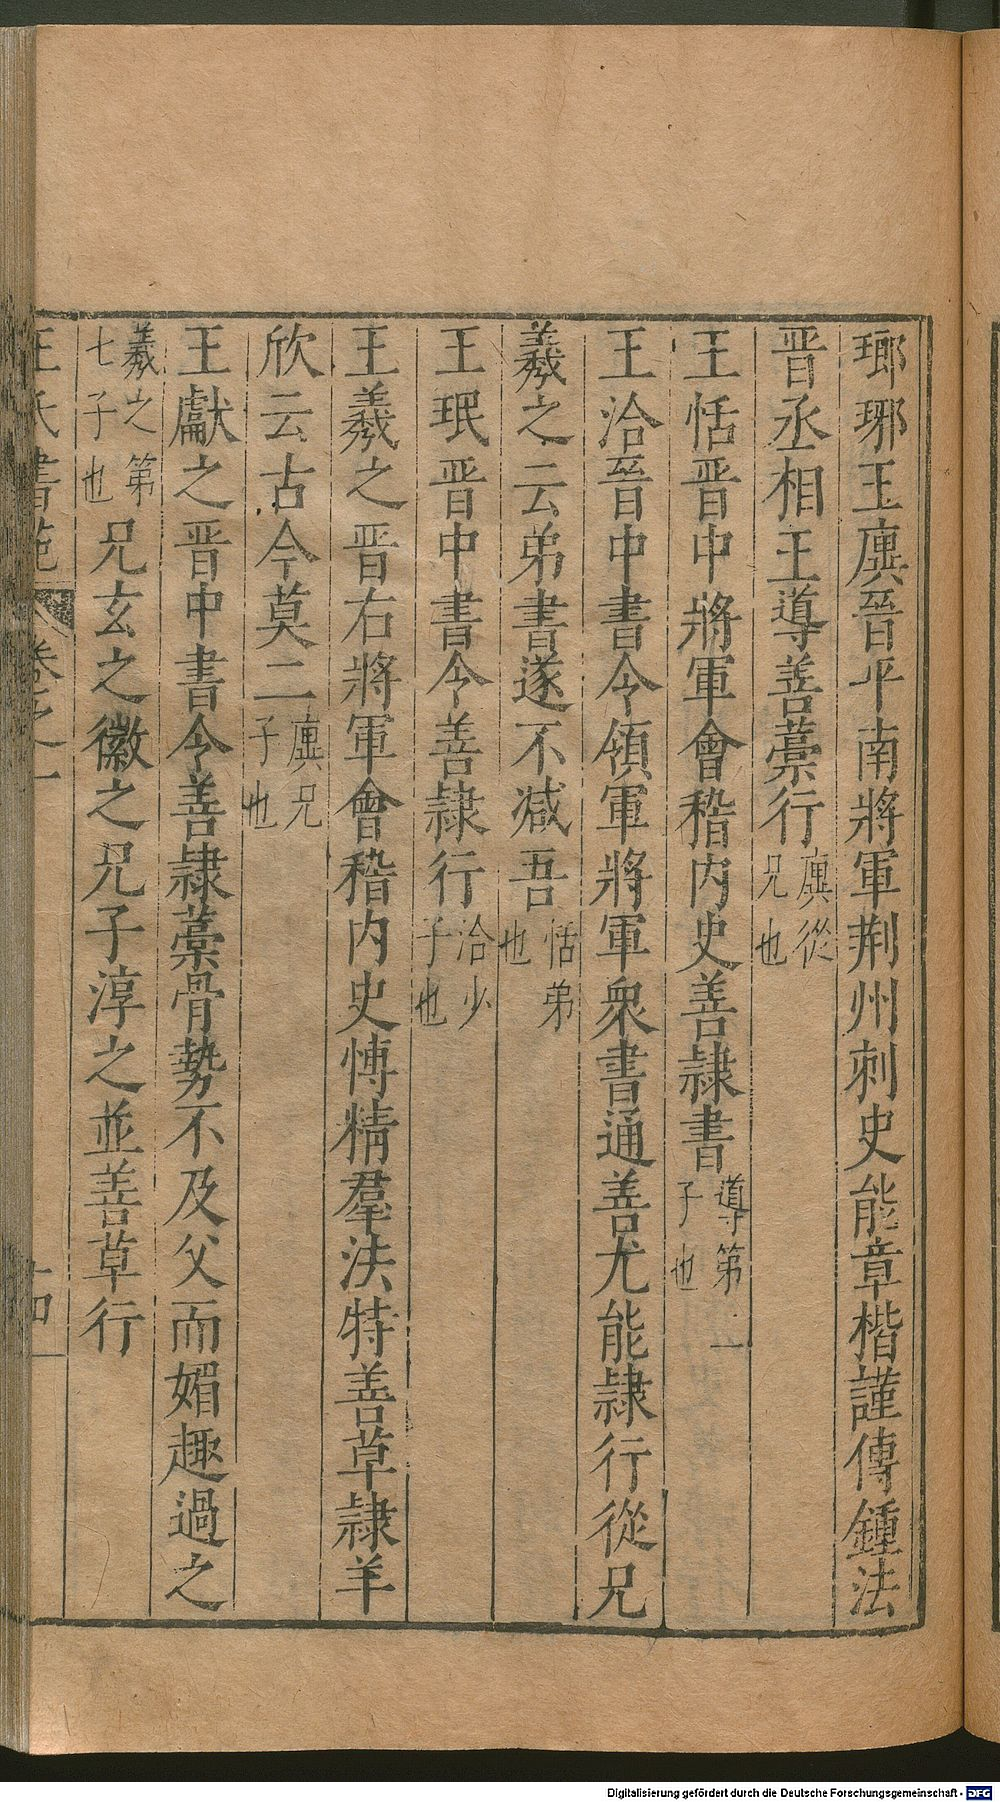 瑯琊王廙晉平南將軍荆州刺史能章楷謹傳鍾法
晉丞相王導善藁行廙從兄也
王恬晉中將軍會稽内史善隷書導第二子也
王洽晉中書令領軍將軍衆書通善尤能隷行從兄
羲之云弟書遂不减吾恬弟也
王珉晉中書令善隷行洽少子也
王羲之晉右將軍會稽内史愽精羣法特善草隷羊
欣云古今莫二廙兄子也
王獻之晉中書令善隷藁骨勢不及父而媚趣過之
羲之第七子也兄玄之徽之兄子淳之並善草行
王氏書苑 卷之一 十四
Digitalisierung gefördert durch die Deutsche Forschungsgemeinschaft - DFG